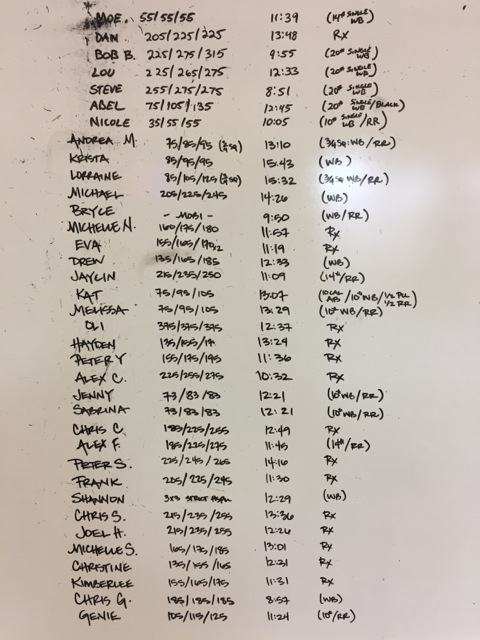 MOE. 55/55/55 11:39 (14# SINGLE WB)
DAN 205/225/225 13:48 RX
BOB B. 225/275/315 9:55 (20# SINGLE WB)
LOU 225/265/275 12:33 (20# SINGLE WB)
STEVE 255/275/275 8:51 (20# SINGLE WB)
ABEL 75/105/135 12:45 (20# SINGLE WB/BLACK)
NICOLE 35/55/55 10:05 (10# SINGLE WB/RR)
ANDREA M. 75/85/95 13:10 (3/4 SQ WB/RR)
KRISTA 85/95/95 15:43 (WB)
LORRAINE 85/105/125 15:32 (3/4 SQ WB/RR)
MICHAEL 205/225/245 14:26 (WB)
BRYCE - MOBI - 9:50 (WB/RR)
MICHELLE N. 160/175/180 11:57 RX
EVA 155/165/170 11:19 RX
DREW 135/165/185 12:33 (WB)
JAYLIN 215/235/250 11:09 (14#/RR)
KAT 75/95/105 13:07 (10 CAL AB/10# WB/1/2 PLL 1/2 RR)
MELISSA 75/95/105 13:29 (10# WB/RR)
OLI 375/375/375 12:37 RX
HAYDEN 135/155/ 13:24 RX
PETER Y 155/175/195 11:36 RX
ALEX C. 225/255/275 10:32 RX
JENNY 73/83/83 12:21 (10# WB/RR)
SABRINA 73/83/83 12:21 (10# WB/RR)
CHRIS C. 185/225/255 12:49 RX
ALEX F. 185/225/275 11:45 (14#/RR)
PETER S. 225/245/265 14:16 RX
FRANK 205/225/245 11:30 RX
SHANNON 3x3 STRICT 12:29 (WB)
CHRIS S. 215/235/255 13:36 RX
JOEL H. 215/235/255 12:26 RX
MICHELLE S. 165/175/185 13:01 RX
CHRISTINE 135/155/165 12:31 RX
KIMBERLEE 155/165/175 11:31 RX
CHRIS G. 185/185/185 8:57 (WB)
GENIE 105/115/125 11:24 (10#/RR)